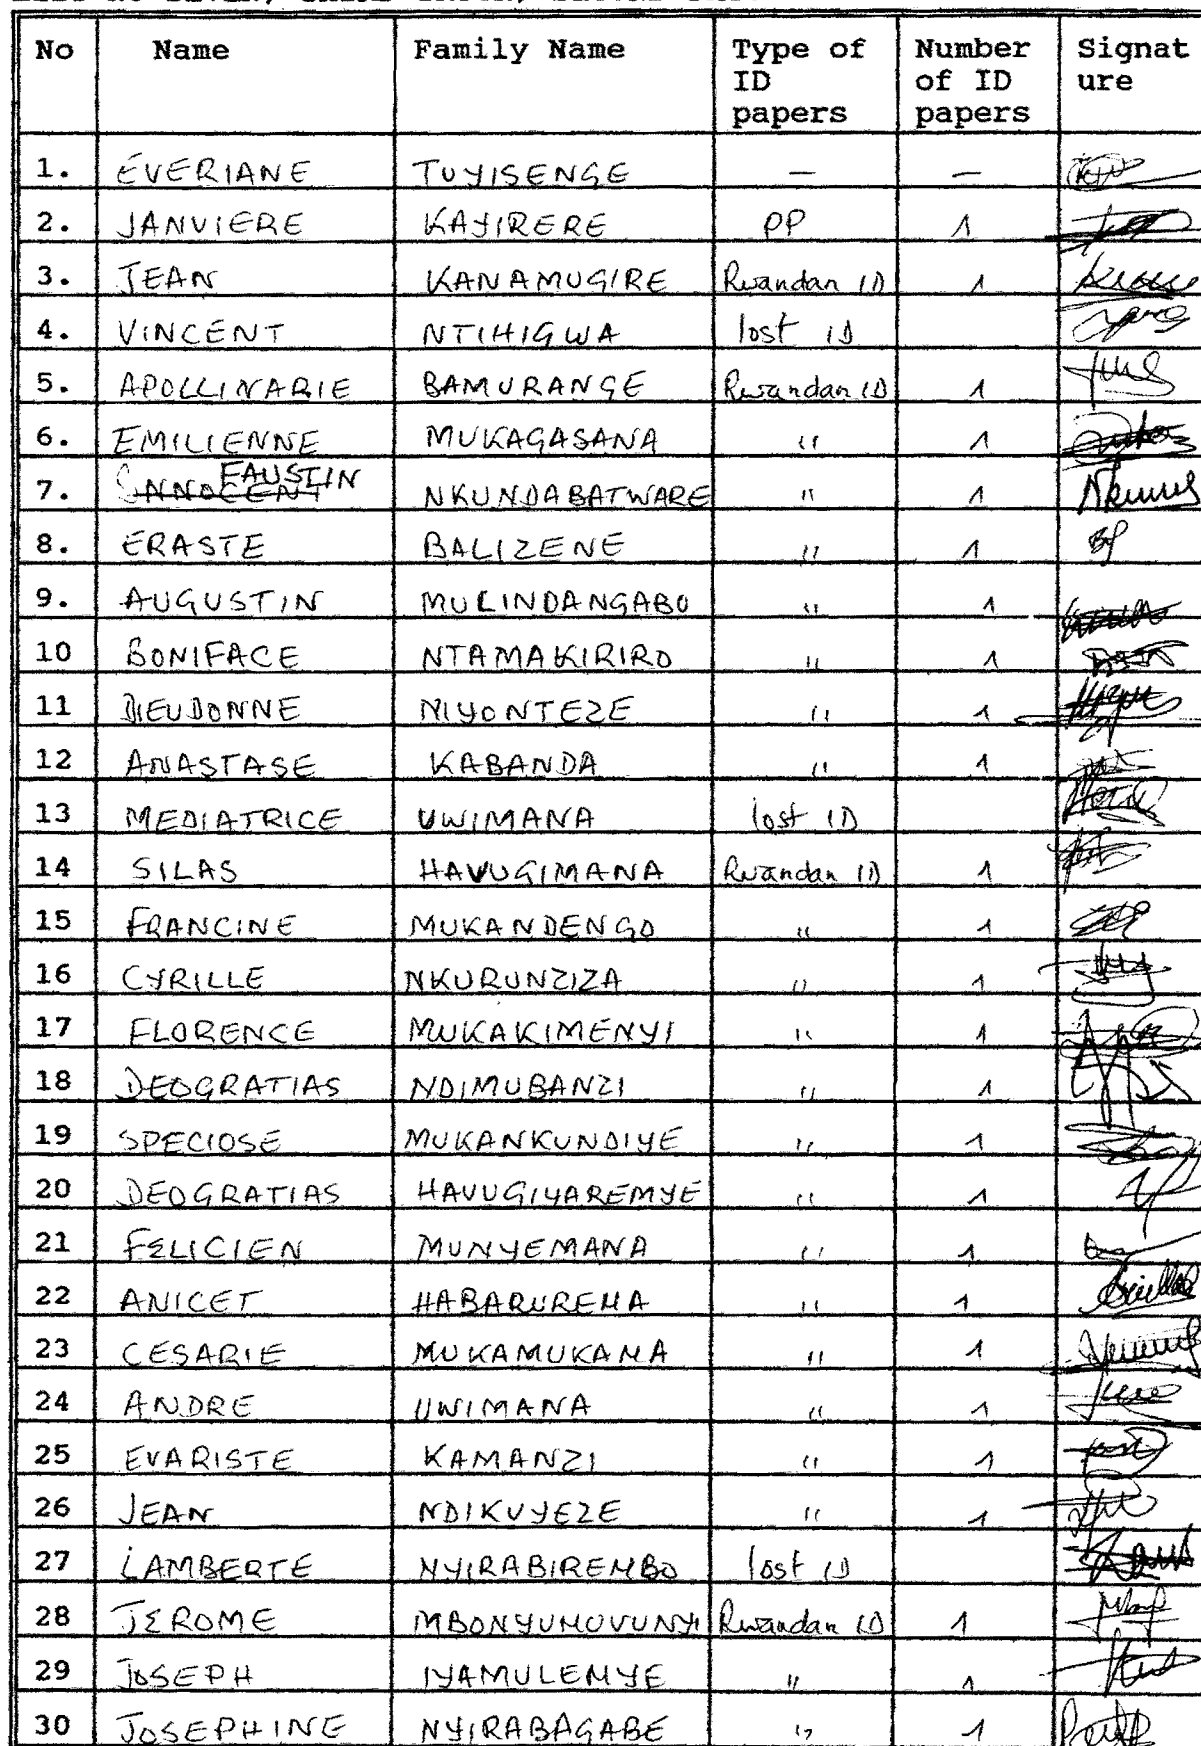 No Name Family Name Type of ID papers Number of ID papers Signature
1. ÉVERIANE TUYISENGE — —
2. JANVIERE KAYIRERE PP 1
3. JEAN KANAMUGIRE Rwandan ID 1
4. VINCENT NTIHIGWA lost ID
5. APOLLINARIE BAMURANGE Rwandan ID 1
6. EMILIENNE MUKAGASANA " 1
7. INNOCENT FAUSTIN NKUNDABATWARE " 1
8. ERASTE BALIZENE " 1
9. AUGUSTIN MULINDANGABO " 1
10 BONIFACE NTAMAKIRIRO " 1
11 DIEUDONNE NIYONTEZE " 1
12 ANASTASE KABANDA " 1
13 MEDIATRICE UWIMANA lost ID
14 SILAS HAVUGIMANA Rwandan ID 1
15 FRANCINE MUKANDENGO " 1
16 CYRILLE NKURUNZIZA " 1
17 FLORENCE MUKAKIMENYI " 1
18 DEOGRATIAS NDIMUBANZI " 1
19 SPECIOSE MUKANKUNDIYE " 1
20 DEOGRATIAS HAVUGIYAREMYE " 1
21 FELICIEN MUNYEMANA " 1
22 ANICET HABARUREMA " 1
23 CESARIE MUKAMUKAMA " 1
24 ANDRE UWIMANA " 1
25 EVARISTE KAMANZI " 1
26 JEAN NDIKUYEZE " 1
27 LAMBERTE NYIRABIREMBO lost ID
28 JEROME MBONYUMUVUNYI Rwandan ID 1
29 JOSEPH IYAMULEMYE " 1
30 JOSEPHINE NYIRABAGABE " 1